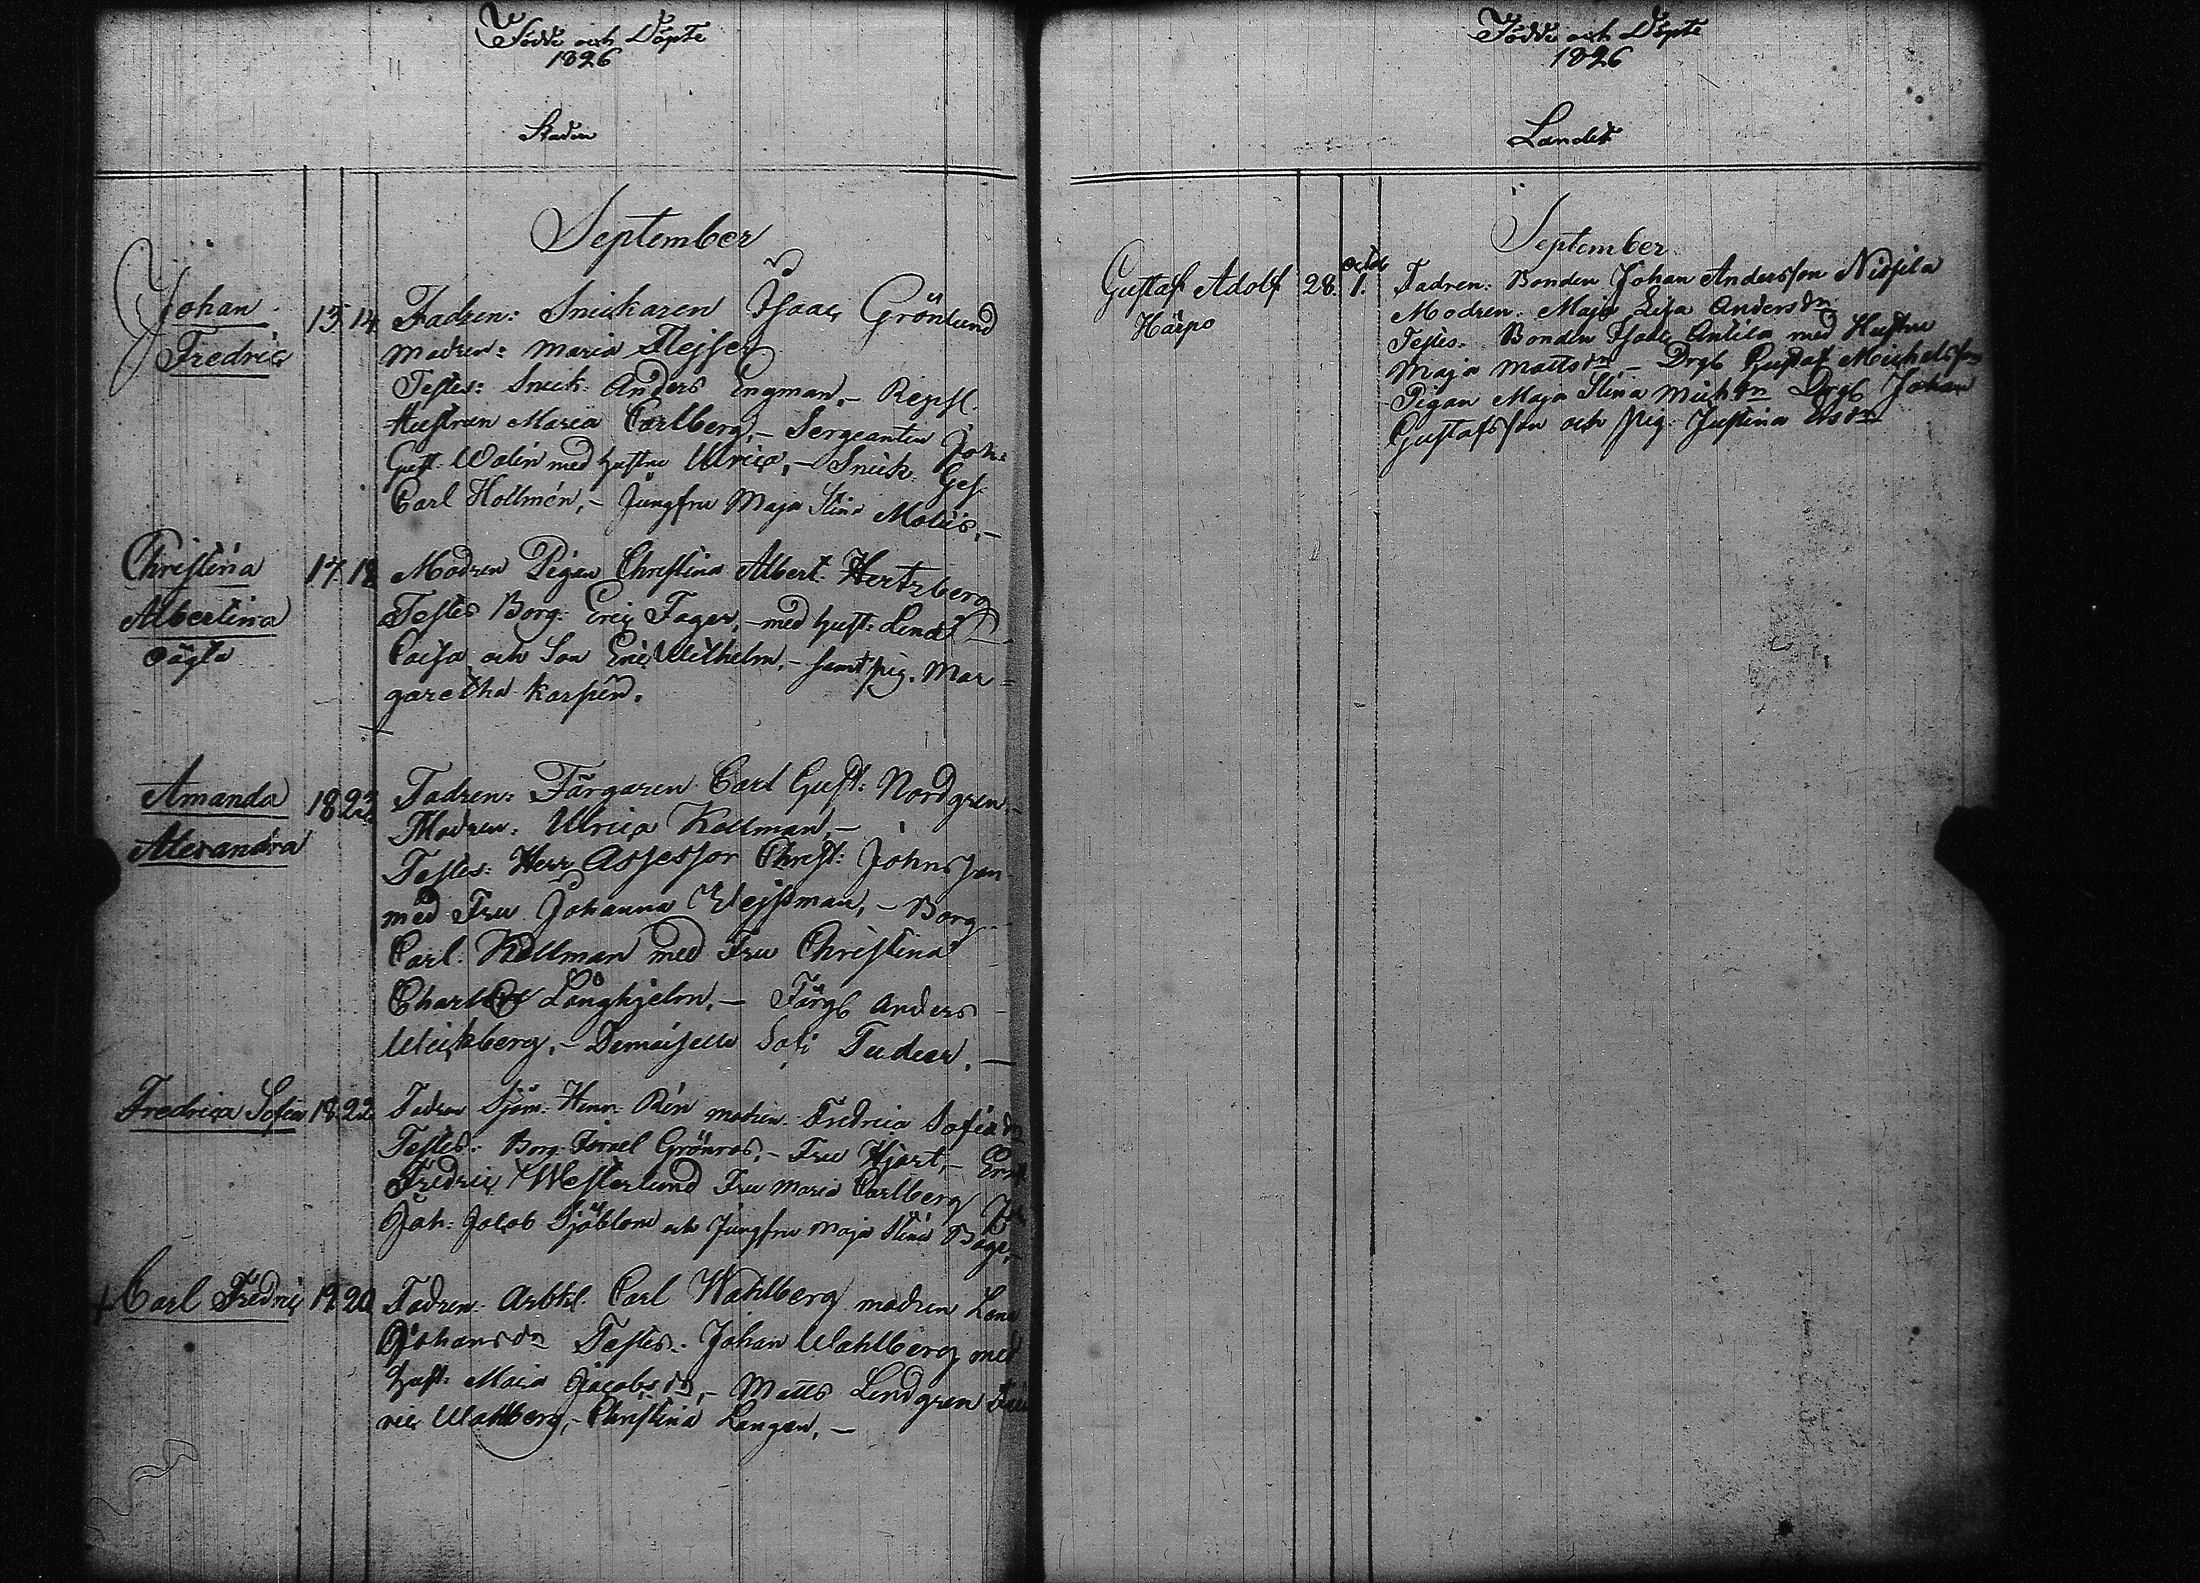 Födde och Döpte
1826
Staden
September
Johan
Fredric
13 14 Fadren: Snickaren Isaac Grönlund
Modren: Maria Flejser
Testes: Snick: Anders Engman,- Repsl.
Hustrun Maria Carlberg,- Sergeanten Joh:
Gust. Walin med hustru Ulrica,- Snick. Ges.
Carl Hollmén,- Jungfru Maja Stina
Christina
Albertina
oägta
17 18 Modren Pigan Christina Albert. Hertzberg
Testes Borg: Eric Fager,- med hust: Lena
Caisa och Son Eric Wilhelm,- samt pig. Mar=
garetha Karpén.
Amanda
Alexandra
18 23 Fadren: Färgaren Carl Gust: Nordgren
Modren: Ulrica Kollman,-
Testes: Herr Assessor Christ: Johnsson
med Fru Johanna,- Borg.
Carl Kollman med Fru Christina
Långhjelm,- Färgb Anders
Wickberg,- Demoiselle Sofi Tudeer.-
Fredrica Sofia 18 22 Fadren Sjöm. Henr. Rén modren Fredrica Sofia
Testes: Borg: Israel Grönros,- Fru Hjort,-
Fredric Westerlund Fru Maria Carlberg
Joh: Jacob Sjöblom och Jungfru Maja Stina
+ Carl Fredric 19 20 Fadren: Arbtsk. Carl Wahlberg modren Lena
Johansdn Testes: Johan Wahlberg med
hust: Maja Jacobsdn,- Matts Lindgren Fred
ric Wahlberg,- Christina Langen.-
Födde och Döpte
1826
Landet
September
Gustaf Adolf
Härpo
28. Octob 1. Fadren: Bonden Johan Andersson Nissila
Modren: Maja Lisa Andersdn
Testes: Bonden Isaac Antila med Hustru
Maja Mattsdn,- Drgb Gustaf Michelsson
Pigan Maja Stina Michdn Drgb Johan
Gustafsson och Pig. Justina